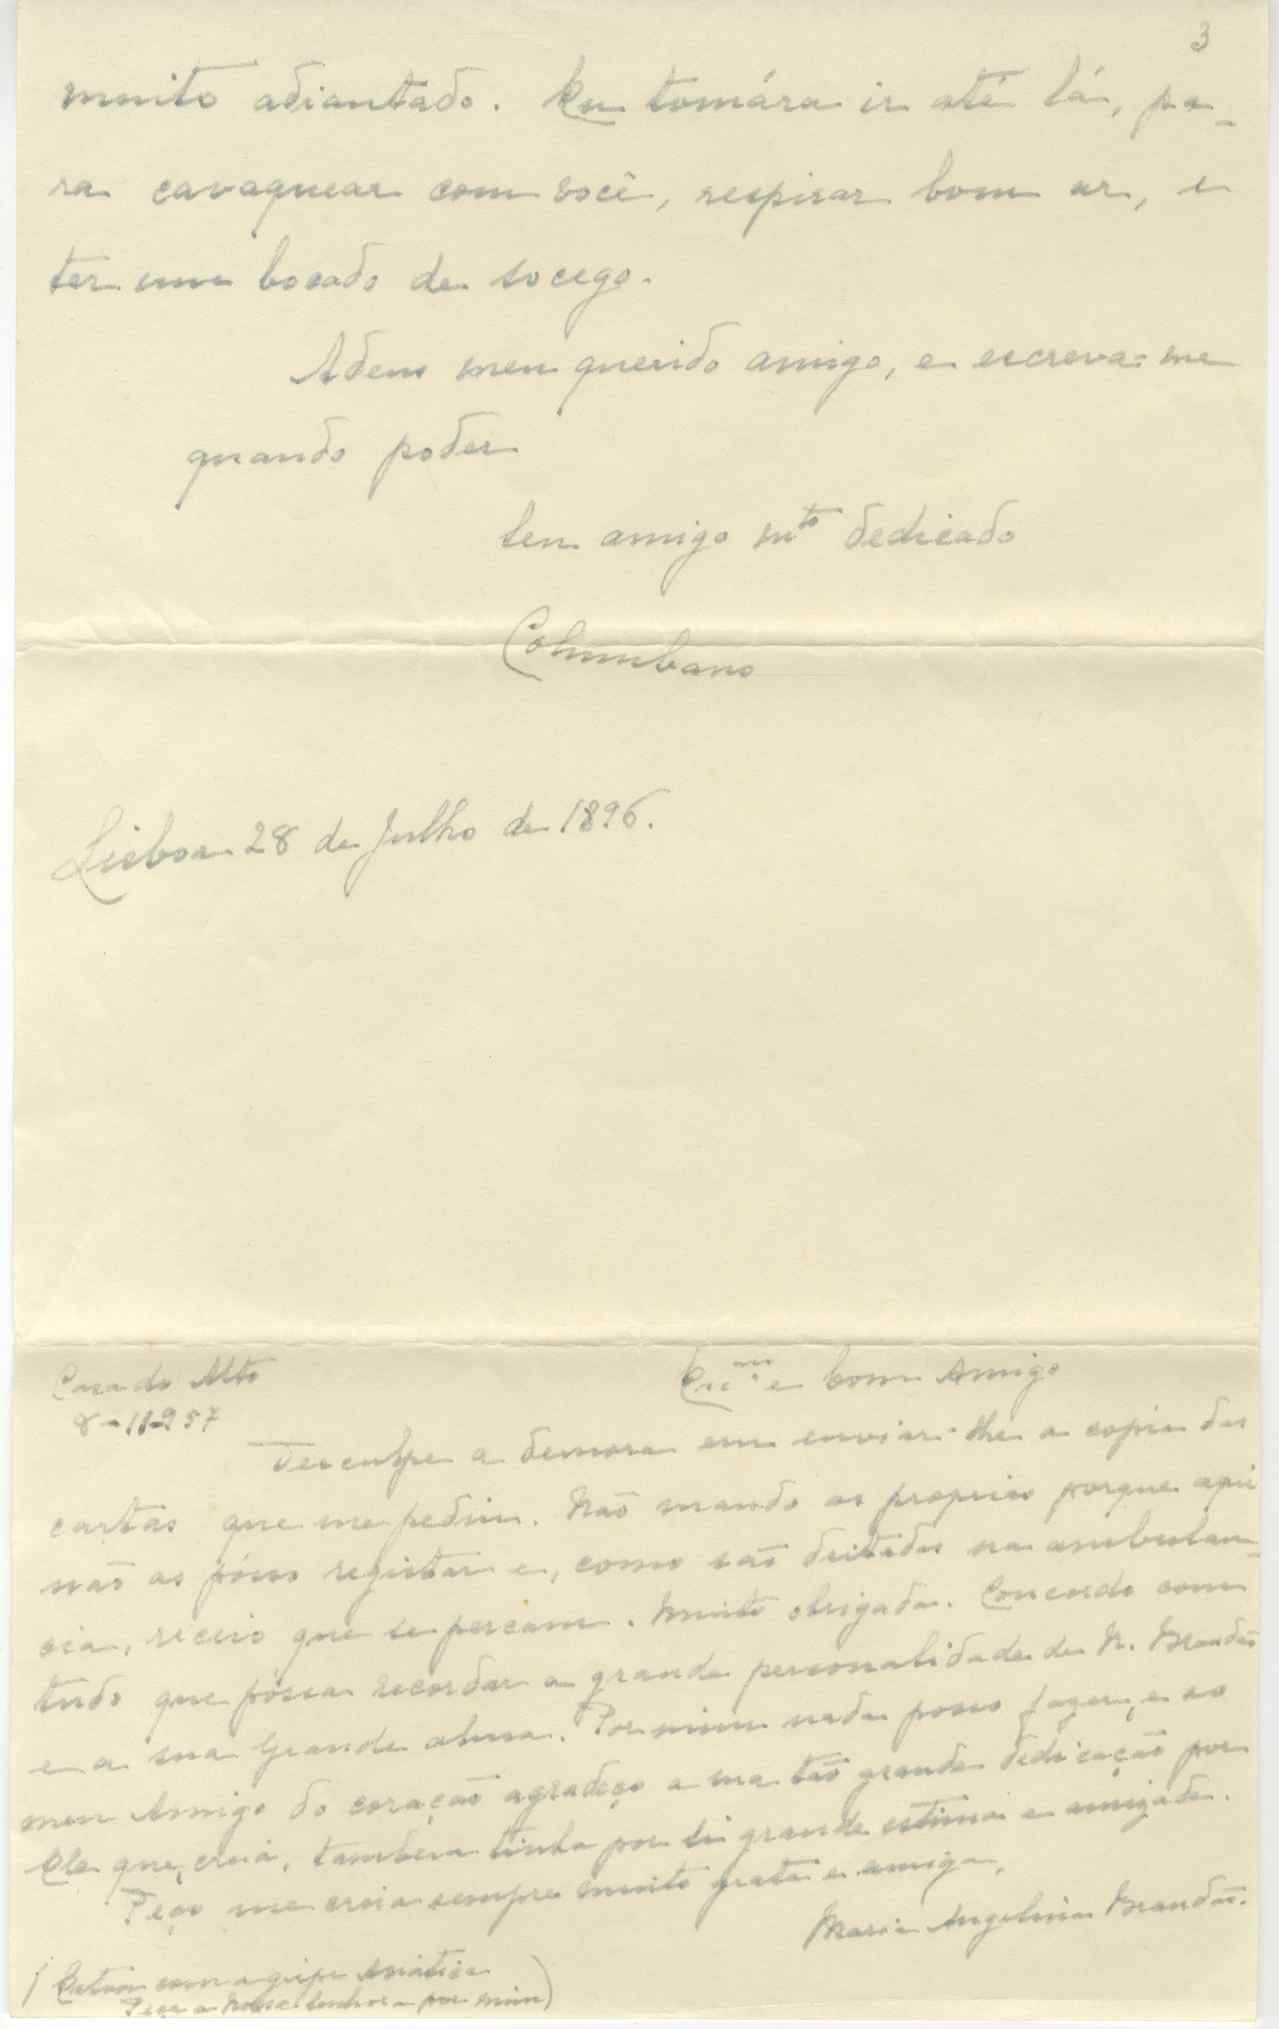 3
muito adiantado. Eu tomára ir até lá, pa-
ra cavaquear com você, respirar bom ar, e
ter um bocado de socego.
Adeus meu querido amigo, e escreva-me
quando poder
Seu amigo mto dedicado
Columbano
Lisboa 28 de Julho de 1896.
Casa do Alto
8-11-957
Exmo e bom Amigo
Desculpe a demora em enviar-lhe a copia das
cartas que me pediu. Não mando as proprias porque aqui
não as pósso registar e, como são deitadas na ambulan-
cia, receio que se percam. Muito obrigada. Concordo com
tudo que póssa recordar a grande personalidade de R. Brandão
e a sua grande alma. Por mim nada posso fazer, e ao
meu Amigo do coração agradeço a sua tão grande dedicação por
Ele que, creia, tambem tinha por si grande estima e amizade.
Peço me creia sempre muito grata e amiga,
Maria Angelina Brandão.
(Estou com a gripe Asiática
Peça a Nossa Senhora por mim)